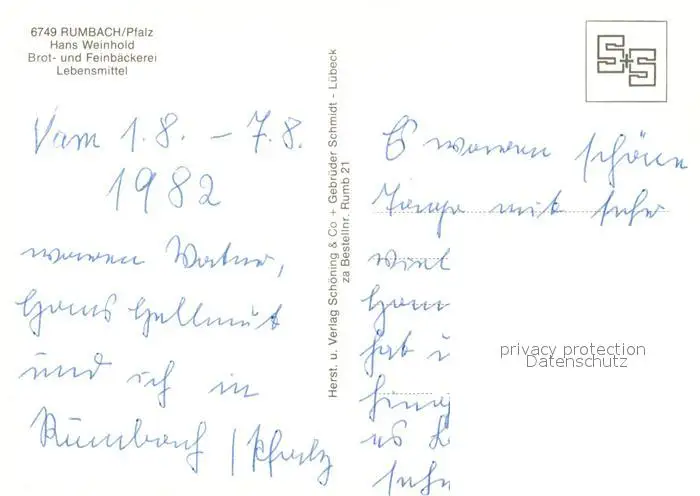 6749 RUMBACH/Pfalz
Hans Weinhold
Brot- und Feinbäckerei
Lebensmittel
Vom 1.8. – 7.8.
1982
waren
Hans Hellmut
und ich in
Rumbach / Pfalz
Herst. u. Verlag Schöning & Co + Gebrüder Schmidt - Lübeck
za Bestellnr. Rumb 21
S+S
Es waren schöne
Tage mit sehr
viel
hab
es
sehr
privacy protection
Datenschutz